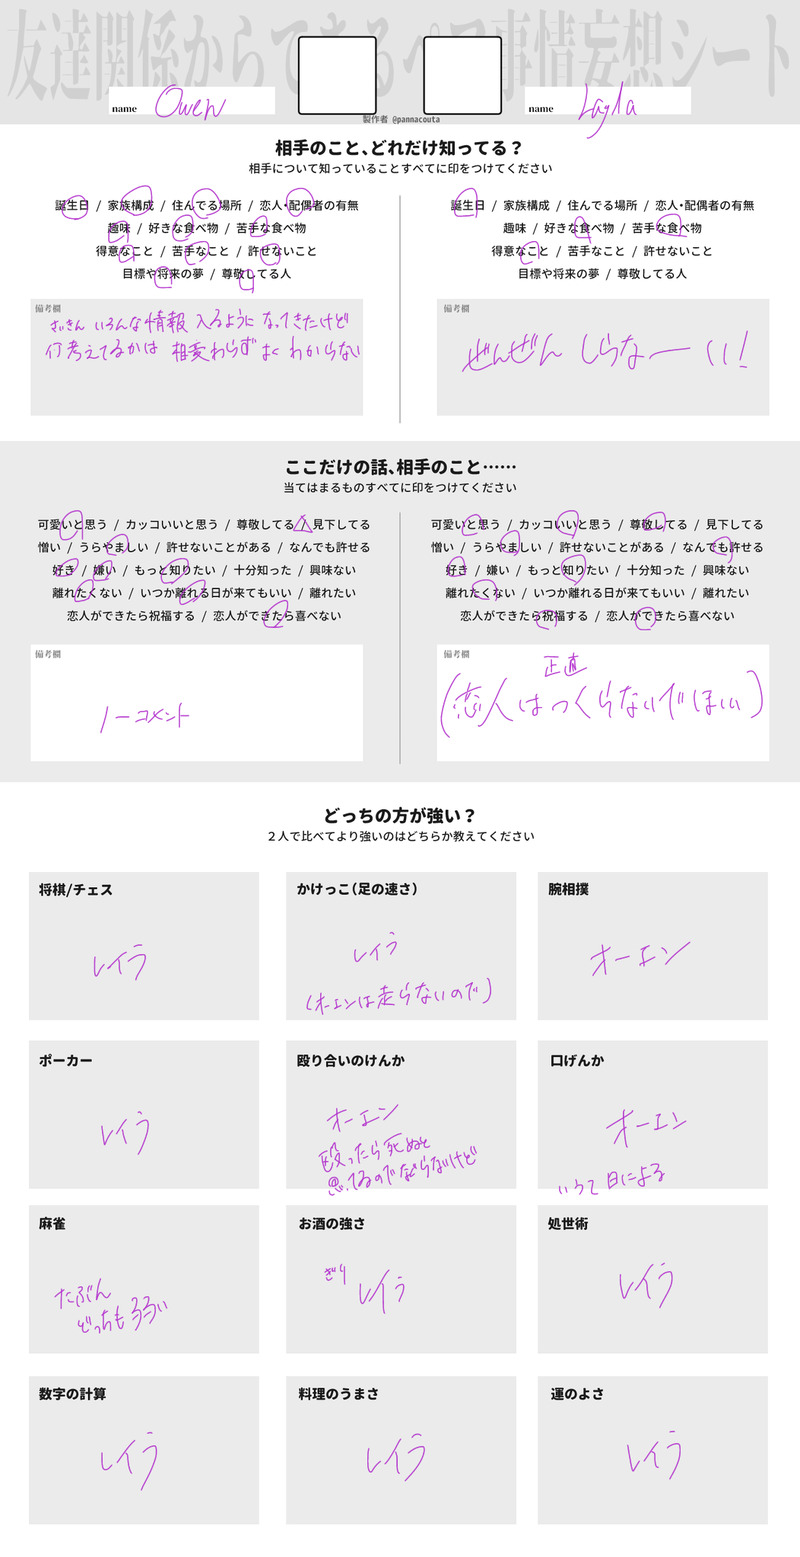 友達関係からできるペア事情妄想シート
name Owen
name Layla
製作者 @pannacouta
相手のこと、どれだけ知ってる？
相手について知っていることすべてに印をつけてください
誕生日 / 家族構成 / 住んでる場所 / 恋人・配偶者の有無
趣味 / 好きな食べ物 / 苦手な食べ物
得意なこと / 苦手なこと / 許せないこと
目標や将来の夢 / 尊敬してる人
備考欄
さいきん いろんな情報 入るように なってきたけど
何考えてるかは 相変わらず よく わからない
誕生日 / 家族構成 / 住んでる場所 / 恋人・配偶者の有無
趣味 / 好きな食べ物 / 苦手な食べ物
得意なこと / 苦手なこと / 許せないこと
目標や将来の夢 / 尊敬してる人
備考欄
ぜんぜん しらなーい!
ここだけの話、相手のこと……
当てはまるものすべてに印をつけてください
可愛いと思う / カッコいいと思う / 尊敬してる / 見下してる
憎い / うらやましい / 許せないことがある / なんでも許せる
好き / 嫌い / もっと知りたい / 十分知った / 興味ない
離れたくない / いつか離れる日が来てもいい / 離れたい
恋人ができたら祝福する / 恋人ができたら喜べない
備考欄
ノーコメント
可愛いと思う / カッコいいと思う / 尊敬してる / 見下してる
憎い / うらやましい / 許せないことがある / なんでも許せる
好き / 嫌い / もっと知りたい / 十分知った / 興味ない
離れたくない / いつか離れる日が来てもいい / 離れたい
恋人ができたら祝福する / 恋人ができたら喜べない
備考欄
正直
(恋人はつくらないでほしい)
どっちの方が強い？
２人で比べてより強いのはどちらか教えてください
将棋/チェス
レイラ
かけっこ（足の速さ）
レイラ
(オーエンは走らないので)
腕相撲
オーエン
ポーカー
レイラ
殴り合いのけんか
オーエン
殴ったら死ぬと
思ってるので なぐらないけど
口げんか
オーエン
いうて 日による
麻雀
たぶん
どっちも弱い
お酒の強さ
ぎり レイラ
処世術
レイラ
数字の計算
レイラ
料理のうまさ
レイラ
運のよさ
レイラ